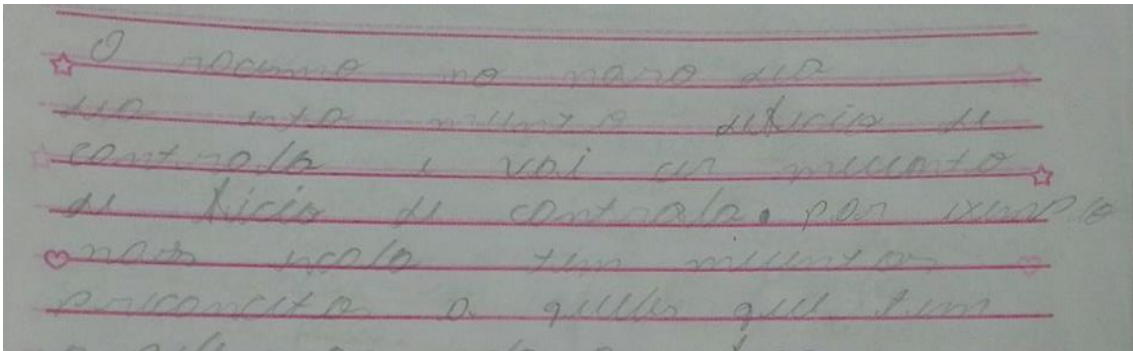 O racismo no naso dia
dia esta muinto deficio de
controla e vai cer muinto
de ficio de controla. por exemplo
nas escola tem muintos
preconceito a queles que tem